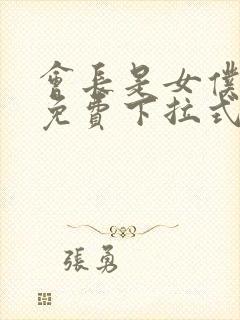 會長是女僕
免費下拉式
張勇